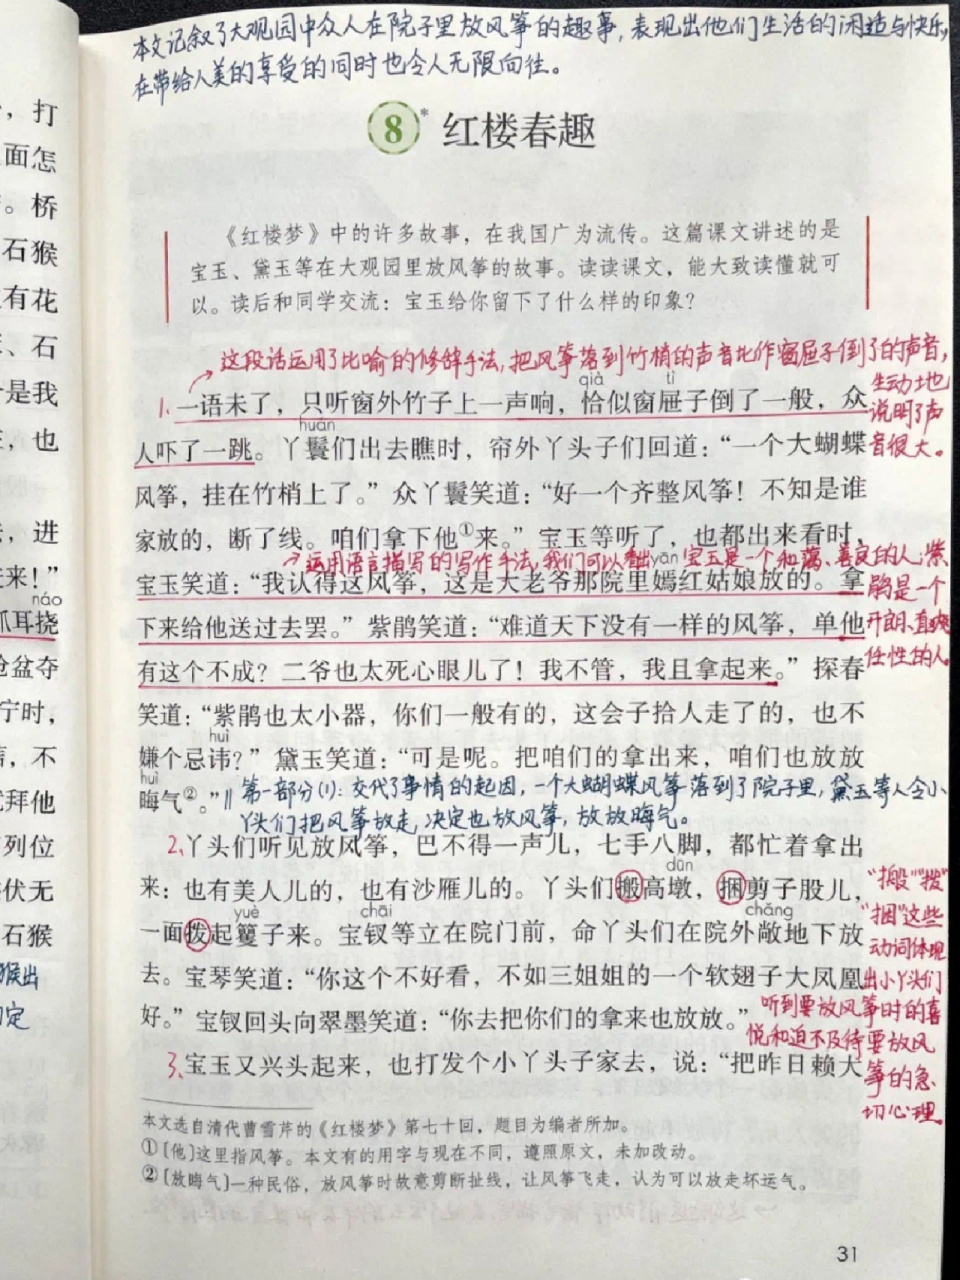 本文记叙了大观园中众人在院子里放风筝的趣事，表现出他们生活的闲适与快乐，
在带给人美的享受的同时也令人无限向往。
8* 红楼春趣
《红楼梦》中的许多故事，在我国广为流传。这篇课文讲述的是
宝玉、黛玉等在大观园里放风筝的故事。读读课文，能大致读懂就可
以。读后和同学交流：宝玉给你留下了什么样的印象？
这段话运用了比喻的修辞手法，把风筝落到竹梢的声音比作窗屉子倒了的声音，
生动地
说明了声
音很大。
qià tì
1、一语未了，只听窗外竹子上一声响，恰似窗屉子倒了一般，众
huán
人吓了一跳。丫鬟们出去瞧时，帘外丫头子们回道：“一个大蝴蝶
风筝，挂在竹梢上了。”众丫鬟笑道：“好一个齐整风筝！不知是谁
家放的，断了线。咱们拿下他①来。”宝玉等听了，也都出来看时，
运用语言描写的写作手法，我们可以看出宝玉是一个和蔼、善良的人，紫
鹃是一个
开朗、直爽
任性的人。
yān
宝玉笑道：“我认得这风筝，这是大老爷那院里嫣红姑娘放的。拿
下来给他送过去罢。”紫鹃笑道：“难道天下没有一样的风筝，单他
有这个不成？二爷也太死心眼儿了！我不管，我且拿起来。”探春
笑道：“紫鹃也太小器，你们一般有的，这会子拾人走了的，也不
huì
嫌个忌讳？”黛玉笑道：“可是呢。把咱们的拿出来，咱们也放放
huì
晦气②。”
‖第一部分(1)：交代了事情的起因，一个大蝴蝶风筝落到了院子里，黛玉等人令小
丫头们把风筝放走，决定也放风筝，放放晦气。
2、丫头们听见放风筝，巴不得一声儿，七手八脚，都忙着拿出
dūn
来：也有美人儿的，也有沙雁儿的。丫头们搬高墩，捆剪子股儿，
yuè chāi chǎng
一面拨起籰子来。宝钗等立在院门前，命丫头们在院外敞地下放
去。宝琴笑道：“你这个不好看，不如三姐姐的一个软翅子大凤凰
好。”宝钗回头向翠墨笑道：“你去把你们的拿来也放放。”
3、宝玉又兴头起来，也打发个小丫头子家去，说：“把昨日赖大
“搬”“拨”
“捆”这些
动词体现
出小丫头们
听到要放风筝时的喜
悦和迫不及待要放风
筝的急
切心理
本文选自清代曹雪芹的《红楼梦》第七十回，题目为编者所加。
①[他]这里指风筝。本文有的用字与现在不同，遵照原文，未加改动。
②[放晦气]一种民俗，放风筝时故意剪断扯线，让风筝飞走，认为可以放走坏运气。
31
，打
面怎
。桥
石猴
有花
、石
是我
，也
，进
来！”
náo
爪耳挠
抢盆夺
宁时，
，不
拜他
列位
伏无
石猴
猴出
定